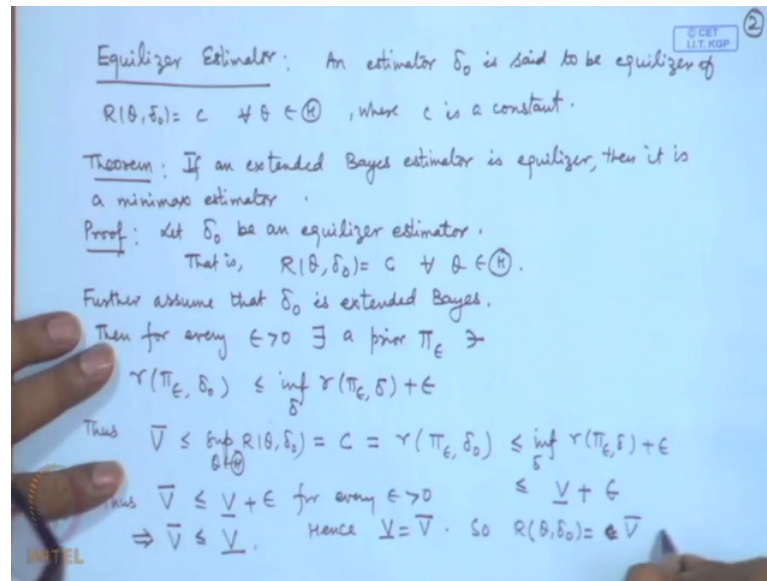 ②
© CET
I.I.T. KGP
Equilizer Estimator: An estimator δ₀ is said to be equilizer of
R(θ,δ₀)= c ∀ θ ∈ Ⓗ, where c is a constant.
Theorem: If an extended Bayes estimator is equilizer, then it is
a minimax estimator.
Proof: Let δ₀ be an equilizer estimator.
That is, R(θ,δ₀)= C ∀ θ ∈ Ⓗ.
Further assume that δ₀ is extended Bayes.
Then for every ϵ>0 ∃ a prior π_ϵ ∋
r(π_ϵ, δ₀) ≤ inf_δ r(π_ϵ, δ) + ϵ
Thus V̅ ≤ sup_{θ∈Ⓗ} R(θ,δ₀) = C = r(π_ϵ, δ₀) ≤ inf_δ r(π_ϵ,δ)+ϵ
≤ V̲ + ϵ
Thus V̅ ≤ V̲ + ϵ for every ϵ>0
⇒ V̅ ≤ V̲. Hence V̲ = V̅. So R(θ,δ₀)= V̅
NPTEL